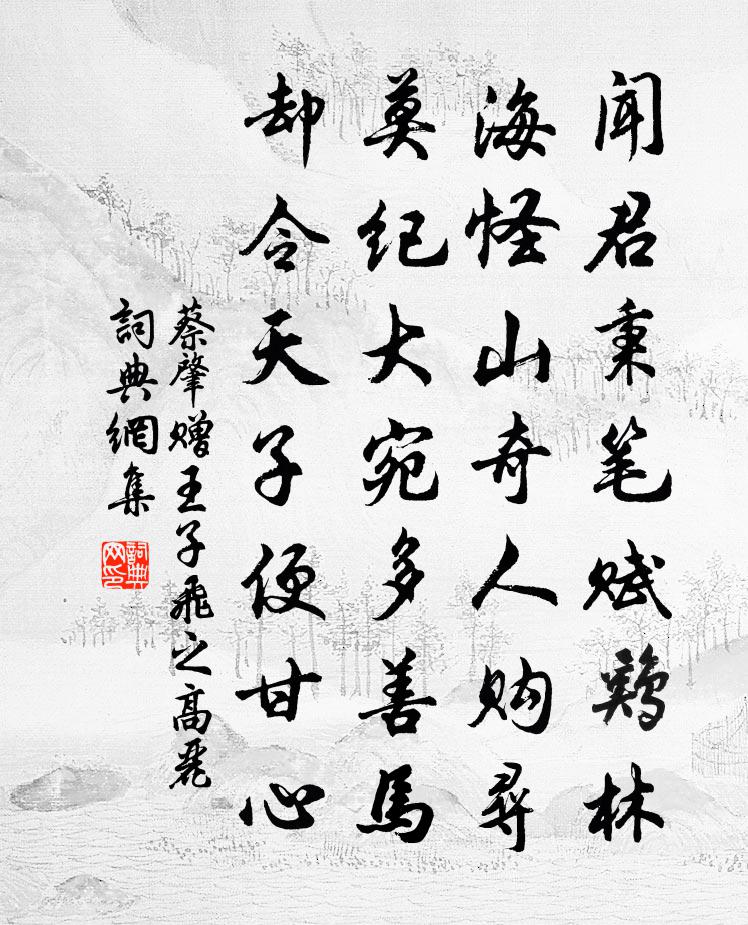 闻君秉笔赋鸡林
海怪山奇人购寻
莫纪大宛多善馬
却令天子便甘心
蔡肇赠王子飛之高麗
詞典網集
詞典网印